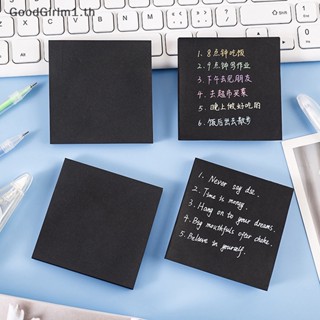 GoodGirlm1.th
1. 8点钟吃饭
2. 9点钟写作业
3. 下午去见朋友
4. 去超市买菜
5. 晚上做好吃的
6. 饭后出去散步
1. Never say die.
2. Time is money.
3. Hang on to your dreams.
4. Big mouthfuls ofter choke.
5. Believe in yourself.